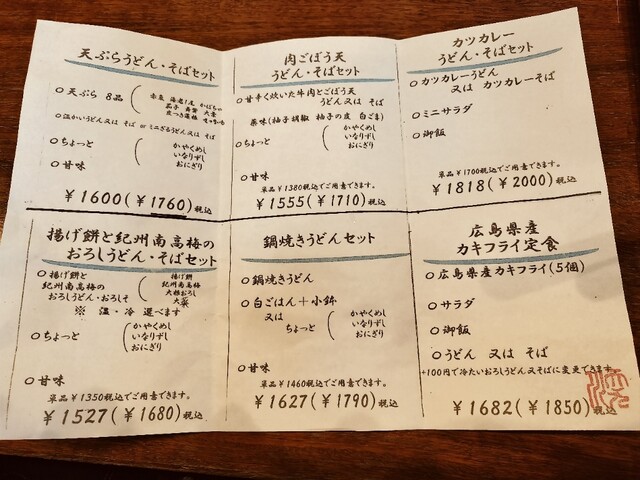 天ぷらうどん・そばセット
○天ぷら 8品
茄子 南京 大葉
○温かいうどん又は そば or ミニざるうどん又は そば
○ちょっと
かやくめし
いなりずし
おにぎり
○甘味
￥1600(￥1760)税込
肉ごぼう天
うどん・そばセット
○甘辛く炊いた牛肉とごぼう天
うどん又は そば
薬味(柚子胡椒 柚子の皮 白ごま)
○ちょっと
かやくめし
いなりずし
おにぎり
○甘味
単品￥1380税込でご用意できます。
￥1555(￥1710)税込
カツカレー
うどん・そばセット
○カツカレーうどん
又は カツカレーそば
○ミニサラダ
○御飯
単品￥1700税込でご用意できます。
￥1818(￥2000)税込
揚げ餅と紀州南高梅の
おろしうどん・そばセット
○揚げ餅と
紀州南高梅の
おろしうどん・おろしそ
揚げ餅
紀州南高梅
大根おろし
大葉
※ 温・冷 選べます
○ちょっと
かやくめし
いなりずし
おにぎり
○甘味
単品￥1350税込でご用意できます。
￥1527(￥1680)税込
鍋焼きうどんセット
○鍋焼きうどん
○白ごはん＋小鉢
又は
ちょっと
かやくめし
いなりずし
おにぎり
○甘味
単品￥1460税込でご用意できます。
￥1627(￥1790)税込
広島県産
カキフライ定食
○広島県産カキフライ(5個)
○サラダ
○御飯
○うどん 又は そば
+100円で冷たいおろしうどん又そばに変更できます。
￥1682(￥1850)税込